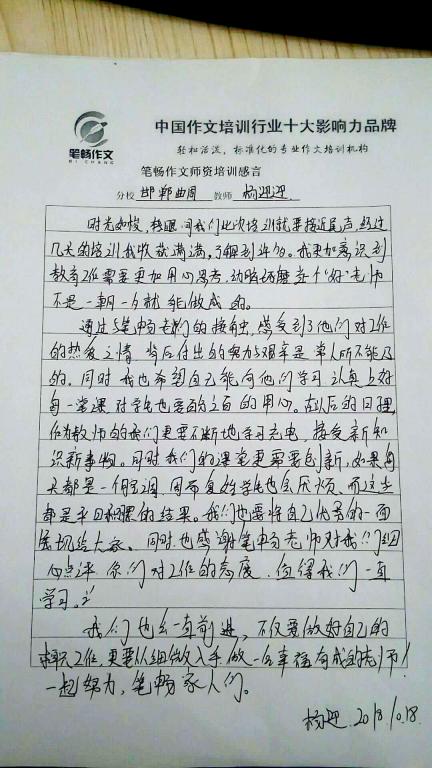 笔畅作文
BI CHANG
中国作文培训行业十大影响力品牌
轻松活泼，标准化的专业作文培训机构
笔畅作文师资培训感言
分校 邯郸曲周 教师 杨迎迎
时光如梭，转眼间我们此次培训就要接近尾声，经过
几天的培训我收获满满，了解到许多。我更加意识到
教育工作需要更加用心思考，动脑琢磨 当个"好"老师
不是一朝一夕就能做成的。
通过与笔畅老师们的接触，感受到了他们对工作
的热爱之情 背后付出的努力与艰辛是常人所不能及
的。同时 我也希望自己能向他们学习 认真上好
每一堂课 对学生也要百分之百的用心。在以后的日子里，
作为教师的我们更要不断地学习充电，接受新知
识新事物。同时我们的课堂更需要创新，如果每
天都是一个强调，周而复始学生也会厌烦，而这些
都是平日积累的结果。我们也要将自己优秀的一面
展现给大家。同时也感谢笔畅老师对我们细
心点评 你们对工作的态度 值得我们一直
学习。
我们也会一直前进，不仅要做好自己的
本职工作，更要从细微入手 做一名幸福有成的老师！
一起努力，笔畅家人们。
杨迎 2018.10.18.